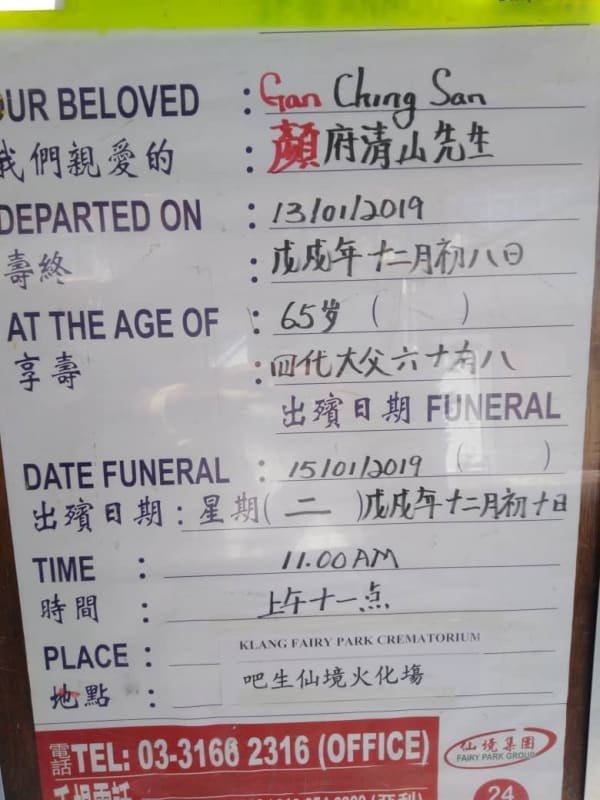 OUR BELOVED : Gan Ching San
我們親愛的 : 顏府清山先生
DEPARTED ON : 13/01/2019
壽終 : 戊戌年十二月初八日
AT THE AGE OF : 65岁 ( )
享壽 : 四代大父六十有八
出殯日期 FUNERAL
DATE FUNERAL : 15/01/2019 ( )
出殯日期 : 星期( 二 )戊戌年十二月初十日
TIME : 11.00AM
時間 : 上午十一点
PLACE : KLANG FAIRY PARK CREMATORIUM
地點 : 吧生仙境火化塲
電話 TEL: 03-3166 2316 (OFFICE)
仙境集团
FAIRY PARK GROUP
手提電話
24